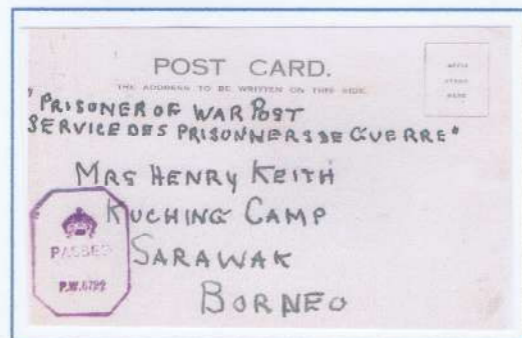 POST CARD.
THE ADDRESS TO BE WRITTEN ON THIS SIDE
AFFIX
STAMP
HERE
"PRISONER OF WAR POST
SERVICE DES PRISONNERS DE GUERRE"
MRS HENRY KEITH
KUCHING CAMP
SARAWAK
BORNEO
PASSED